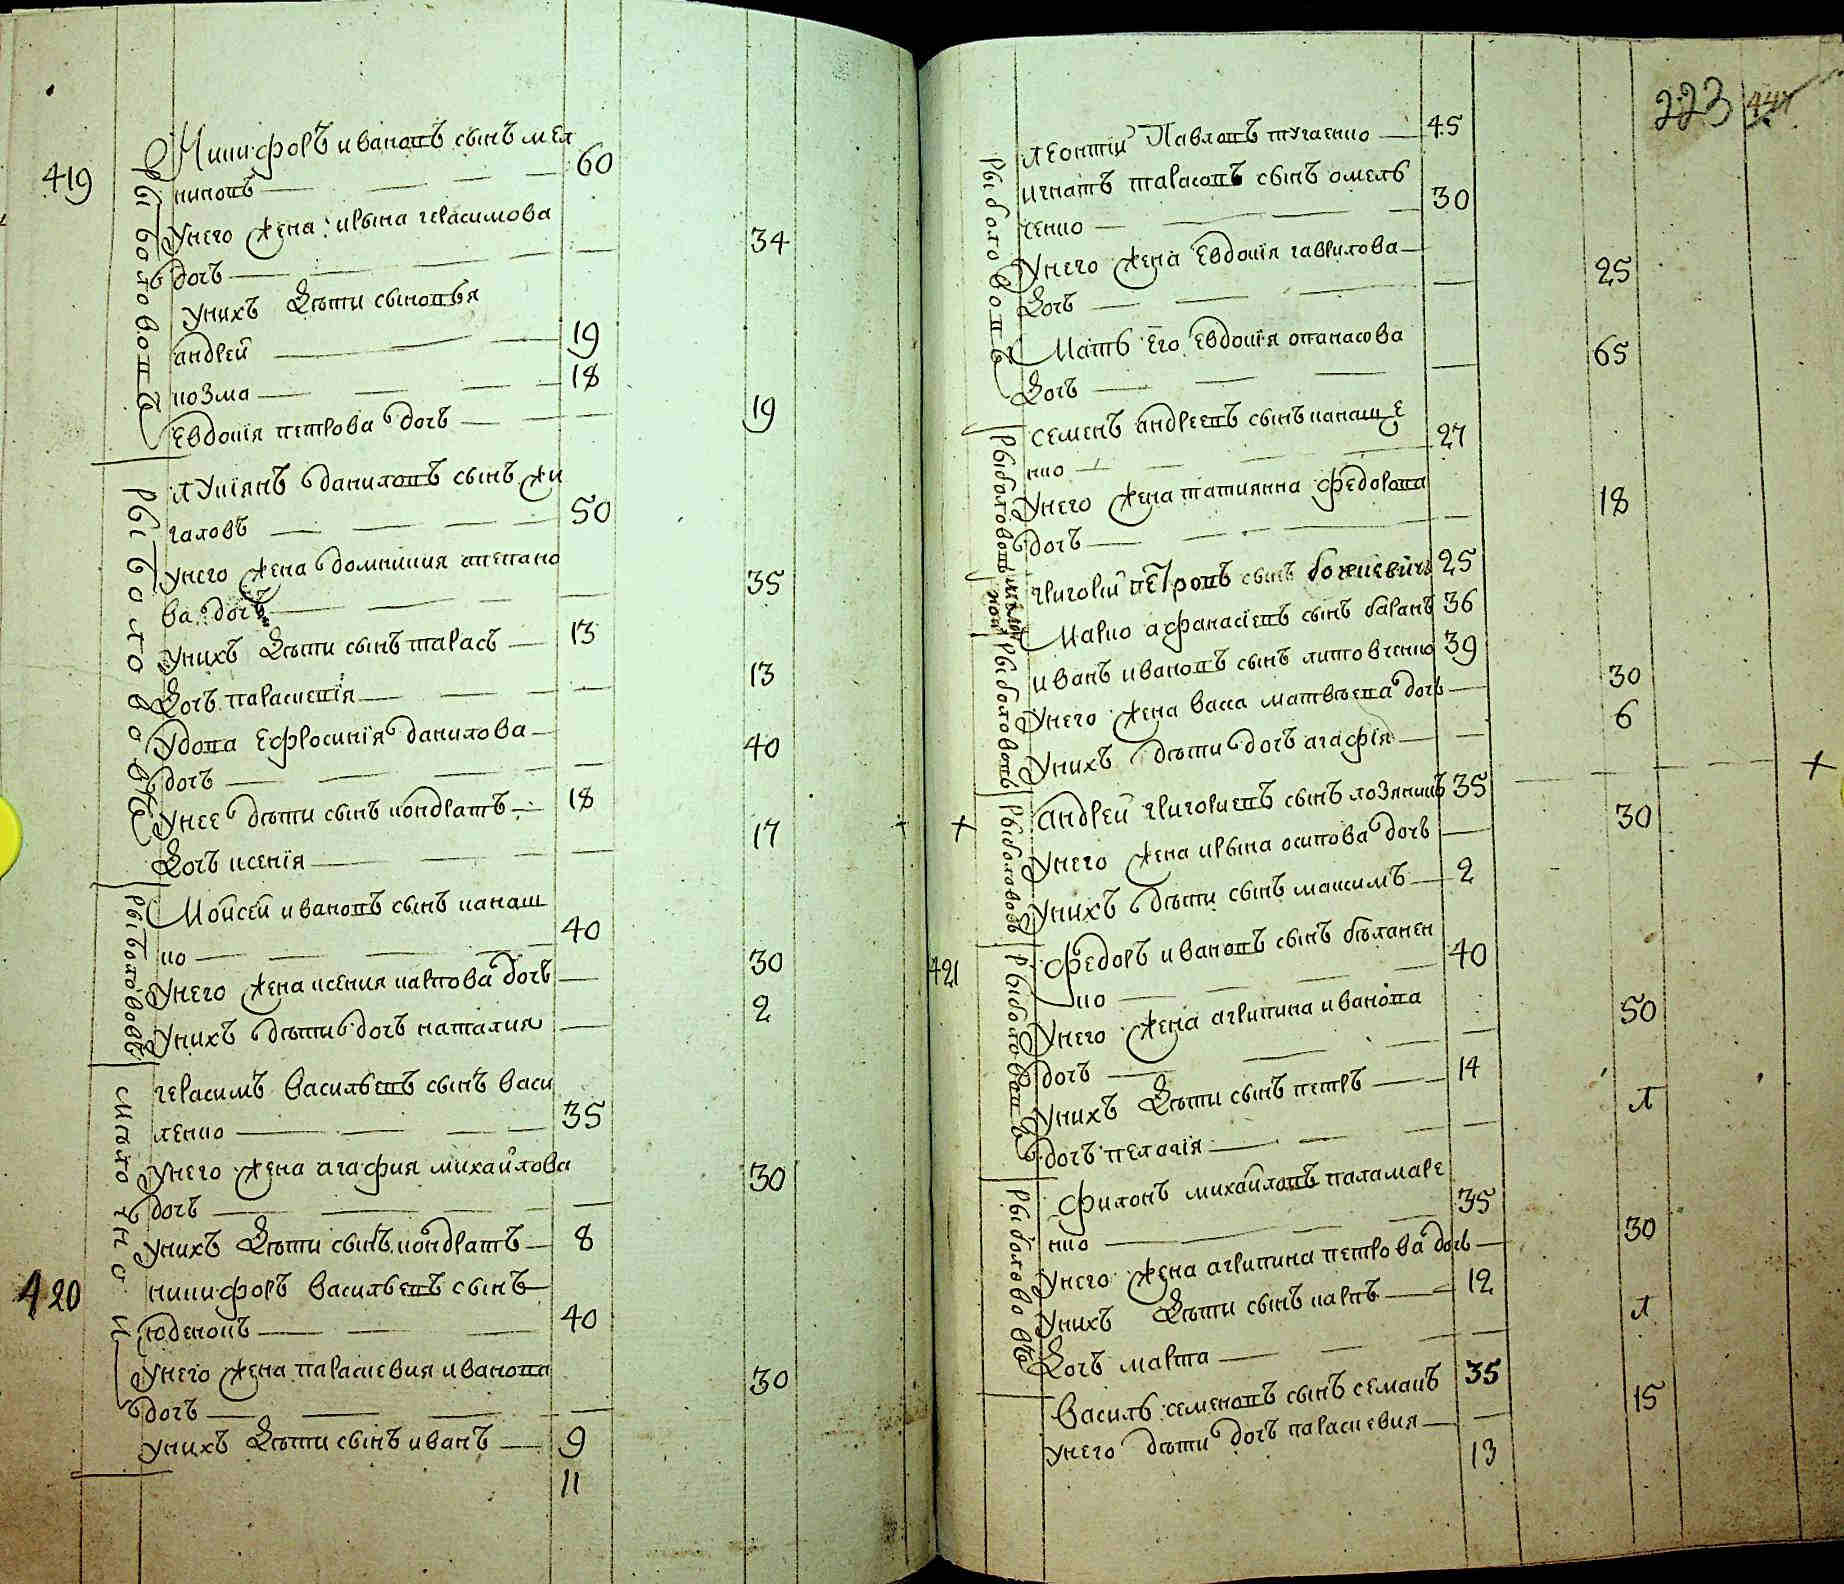 419
рыболовопъ
Никифоръ ивановъ сынъ мел
никопъ 60
унего жена ирына герасимова
дочь 34
унихъ дѣти сынопья
андрей 19
козма 18
Евдокія петрова дочь 19
рыболововъ
лукіянъ данилопъ сынъ жи
галовъ 50
унего жена домникия степано
ва дочь 35
унихъ дѣти сынъ тарасъ 13
дочь параскепія 13
удопа Ефросинія данилова
дочь 40
унее дѣти сынъ кондратъ 18
дочь ксенія 17
рыболововъ
Мойсей иванопъ сынъ канаш
ко 40
унего жена ксения карпова дочь 30
унихъ дѣти дочь наталия 2
герасимъ васильепъ сынъ васи
ленко 35
унего жена агафия михайлова
дочь 30
унихъ дѣти сынъ кондратъ 8
420
никифоръ васильепъ сынъ
40
унего жена параскевия иванопа
дочь 30
унихъ дѣти сынъ иванъ 9
11
223
рыболовопъ
леонтий Павлопъ тугаенко 45
игнатъ тарасопъ сынъ омель
ченко 30
унего жена Евдокія гаврилова
дочь 25
Мать его Евдокія опанасова
дочь 65
рыболовопъ
семенъ андреепъ сынъ канаще
нко 27
унего жена татиянна федоропа
дочь 18
григорий петропъ сынъ 25
Марко афанасіепъ сынъ баранъ 36
рыболовопъ
иванъ иванопъ сынъ литовченко 39
унего жена васса матвѣепа дочь 30
унихъ дѣти дочь агафія 6
рыболововъ
андрей григориепъ сынъ лозяникъ 35
унего жена ирына осипова дочь 30
унихъ дѣти сынъ максимъ 2
421
рыболовапъ
федоръ иванопъ сынъ бѣланен
ко 40
унего жена агрипина иванопа
дочь 50
унихъ дѣти сынъ петръ 14
дочь пелагія л
рыболововъ
филонъ михайлопъ паламаре
нко 35
унего жена агрипина петрова дочь 30
унихъ дѣти сынъ карпъ 12
дочь марта л
василь семенопъ сынъ семакъ 35
унего дѣти дочь параскевия 15
13